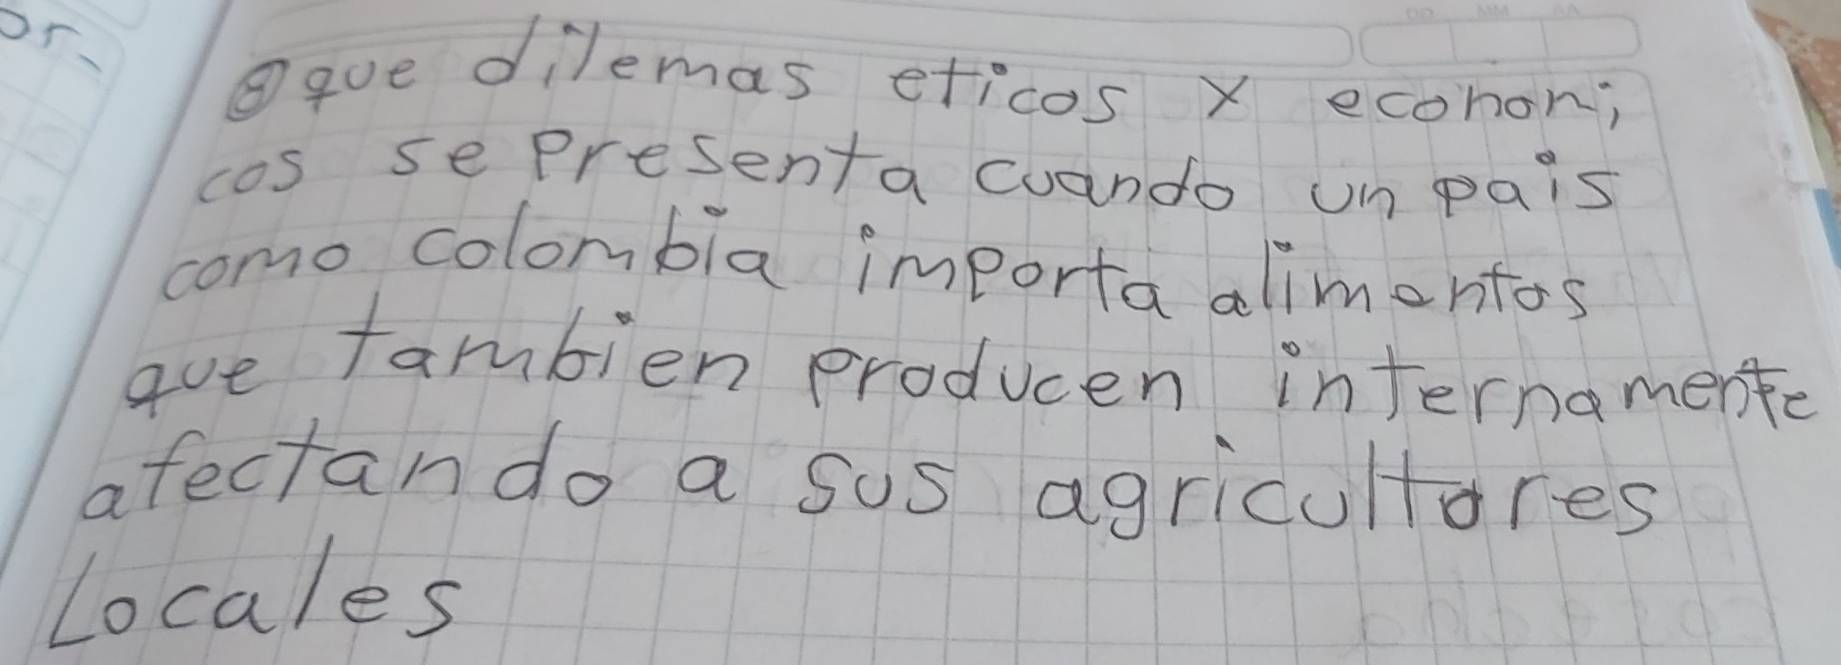 or-
⑧ que dilemas eticos y economi
cos se presenta cuando un pais
como colombia importa alimentos
que tambien producen internamente
afectando a sus agricultores
Locales